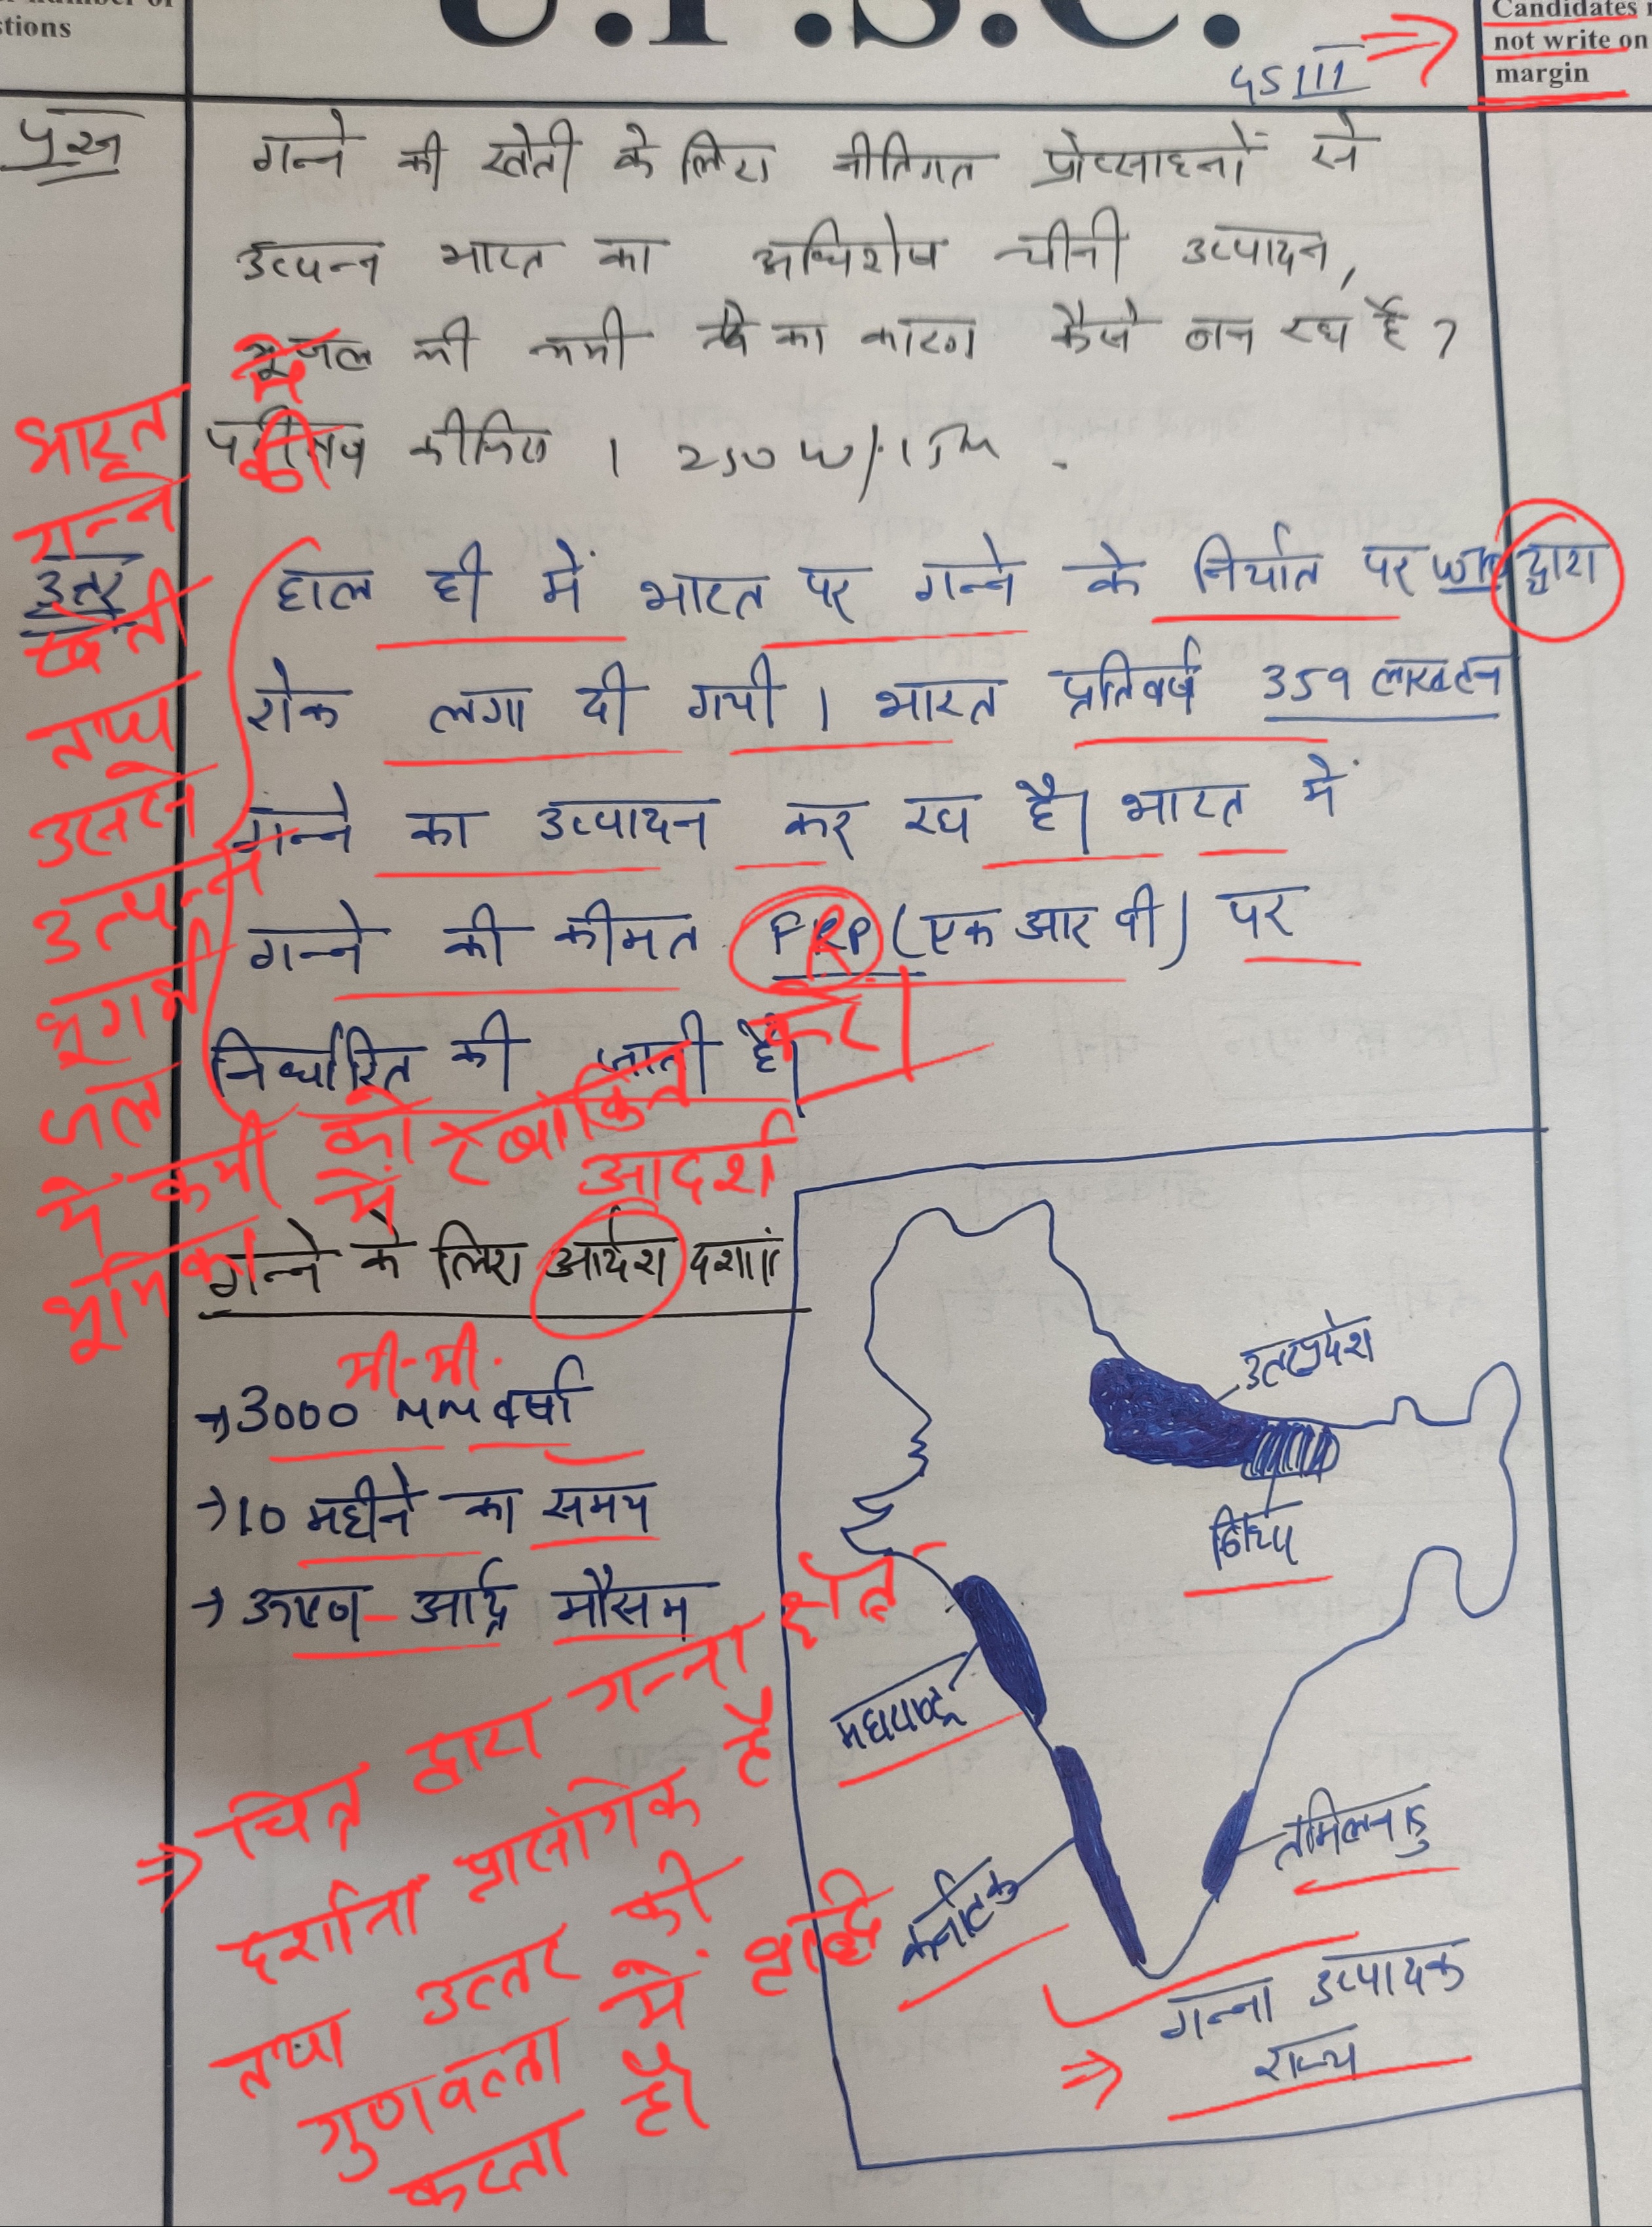 stions
U.P.S.C.
Candidates
not write on
margin
GS III
प्रश्न
गन्ने की खेती के लिए नीतिगत प्रोत्साहनों से
उत्पन्न भारत का अधिशेष चीनी उत्पादन,
भूजल की कमी का कारण कैसे बन रहा है ?
कीजिए । 250 W/15M.
उत्तर
हाल ही में भारत पर गन्ने के निर्यात पर WTO द्वारा
रोक लगा दी गयी । भारत प्रतिवर्ष 359 लाख टन
गन्ने का उत्पादन कर रहा है। भारत में
गन्ने की कीमत FRP (एफ आर पी) पर
निर्धारित की जाती है।
भारत में
गन्ने की
खेती
तथा
उससे
उत्पन्न
भूगर्भ
जल
में कमी को रेखांकित करें।
भूमिका में
आदर्श
गन्ने के लिए आर्दश दशाएं
मी-मी.
→ 3000 mm वर्षा
→ 10 महीने का समय
→ ऊष्ण-आर्द्र मौसम
उत्तरप्रदेश
बिहार
महाराष्ट्र
कर्नाटक
तमिलनाडु
गन्ना उत्पादक
राज्य
⇒ चित्र द्वारा गन्ना क्षेत्र
दर्शाना प्रासंगिक है
तथा उत्तर की
गुणवत्ता में वृद्धि
करता है।